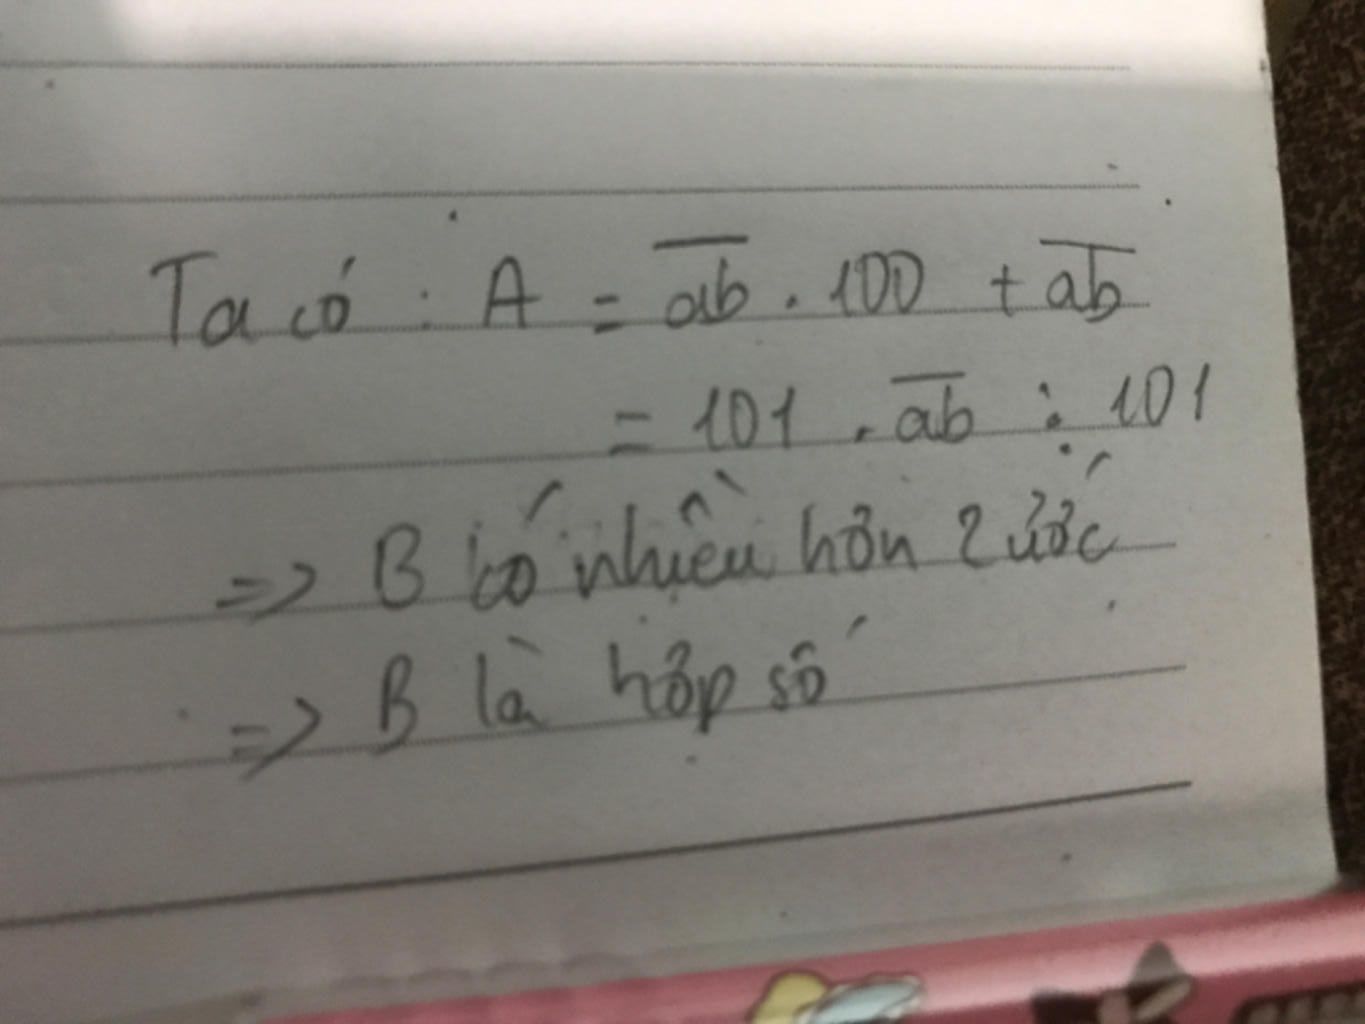 Ta có : A = \overline{ab} . 100 + \overline{ab}
= 101 . \overline{ab} ⋮ 101
=> B có nhiều hơn 2 ước
=> B là hợp số